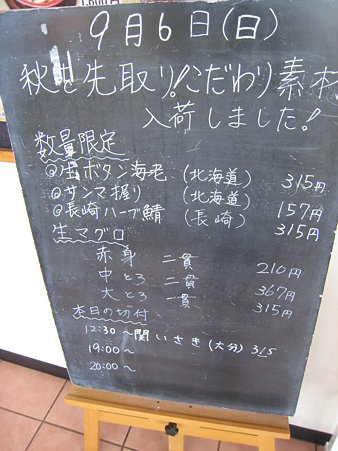 9月6日(日)
秋を先取り!こだわり素材
入荷しました!
数量限定
◎生ボタン海老 (北海道) 315円
◎サンマ握り (北海道) 157円
◎長崎ハーブ鯖 (長崎) 315円
生マグロ
赤身 二貫 210円
中とろ 二貫 367円
大とろ 一貫 315円
本日の切付
12:30~関いさき(大分) 315
19:00~
20:00~